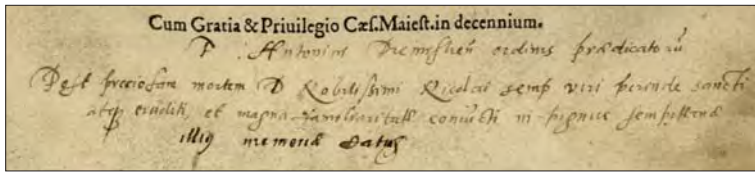 Cum Gratia & Priuilegio Cæs. Maiest. in decennium.
F. Antonius ordinis prædicatorũ
Post preciosam mortem D Nobilissimi Nicolai semp viri perinde sancti
atq eruditi, et magna familiaritate coniũcti in pignus sempiternæ
illiq memoriæ datus